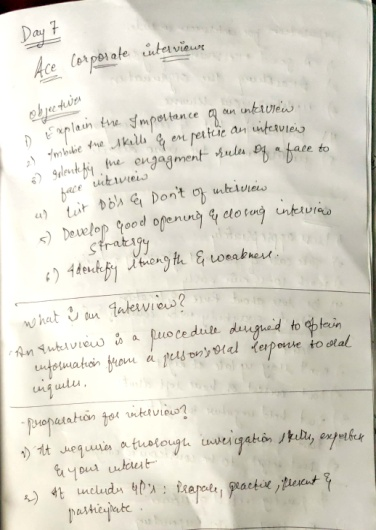 Day 7
Ace Corporate interviews
Objectives
1) Explain the Importance of an interview
2) Imbibe the skills & expertise an interview
3) Identify the engagment rules of a face to
face interview
4) List Do's & Don't of interview
5) Develop Good opening & closing interview
Stratergy
6) Identify strength & weakness.
What is an Interview?
An Interview is a procedure designed to optain
information from a person's oral response to oral
inquiries.
preparation for interview?
1) It requires a thorough investigation skills, expertise
& your interest
2) It includes 4P's : Prepare, practice, present &
participate.